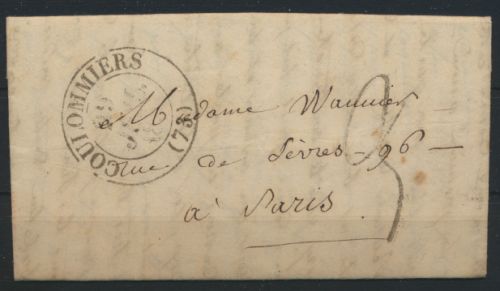 COULOMMIERS (73)
a Madame Wannier
rue de Sèvres - 96 -
à Paris
3